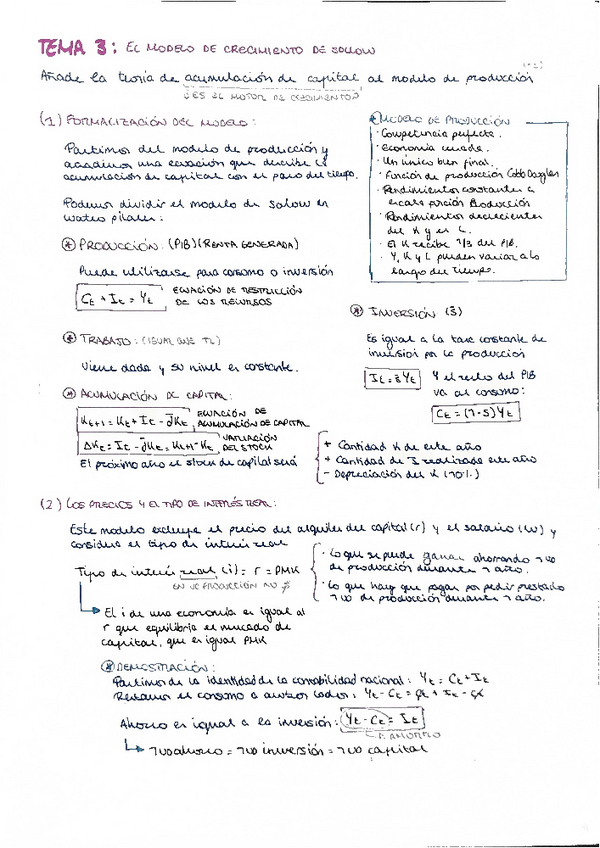 TEMA 3: EL MODELO DE CRECIMIENTO DE SOLLOW
Añade la teoría de acumulación de capital al modelo de producción
¿ES EL MOTOR DE CRECIMIENTO?
(1) FORMALIZACIÓN DEL MODELO:
Partimos del modelo de producción y
añadimos una ecuación que describe la
acumulación de capital con el paso del tiempo.
Podemos dividir el modelo de Solow en
cuatro pilares:
* MODELO DE PRODUCCIÓN
· Competencia perfecta.
· Economía cerrada.
· Un único bien final.
· Función de producción Cobb Douglas
· Rendimientos constantes a
escala función Producción
· Rendimientos decrecientes
del K y el L.
· El K recibe 1/3 del PIB.
· Y, K y L pueden variar a lo
largo del tiempo.
* PRODUCCIÓN: (PIB)(RENTA GENERADA)
Puede utilizarse para consumo o inversión
Ct + It = Yt ECUACIÓN DE RESTRICCIÓN
DE LOS RECURSOS
* TRABAJO: (IGUAL QUE TL)
Viene dada y su nivel es constante.
* INVERSIÓN (s̄)
Es igual a la tasa constante de
inversión por la producción
It = s̄Yt Y el resto del PIB
va al consumo:
Ct = (1-s)Yt
* ACUMULACIÓN DE CAPITAL:
Kt+1 = Kt + It - d̄Kt ECUACIÓN DE
ACUMULACIÓN DE CAPITAL
ΔKt = It - d̄Kt = Kt+1 - Kt VARIACIÓN
DEL STOCK
El próximo año el stock de capital será
+ Cantidad K de este año
+ Cantidad de I realizada este año
- Depreciación del K (10%)
(2) LOS PRECIOS Y EL TIPO DE INTERÉS REAL:
Este modelo excluye el precio del alquiler del capital (r) y el salario (w) y
considera el tipo de interés real
Tipo de interés real (i) = r = PMK
EN UE PRODUCCIÓN NO $
· Lo que se puede ganar ahorrando 1 ud
de producción durante 1 año.
· Lo que hay que pagar por pedir prestado
1 ud de producción durante 1 año.
El i de una economía es igual al
r que equilibra el mercado de
capital, que es igual PMK
* DEMOSTRACIÓN:
Partimos de la identidad de la contabilidad nacional: Yt = Ct + It
Restamos el consumo a ambos lados: Yt - Ct = Ct + It - Ct
Ahorro es igual a la inversión: Yt - Ct = It
AHORRO
1 ud ahorro = 1 ud inversión = 1 ud capital